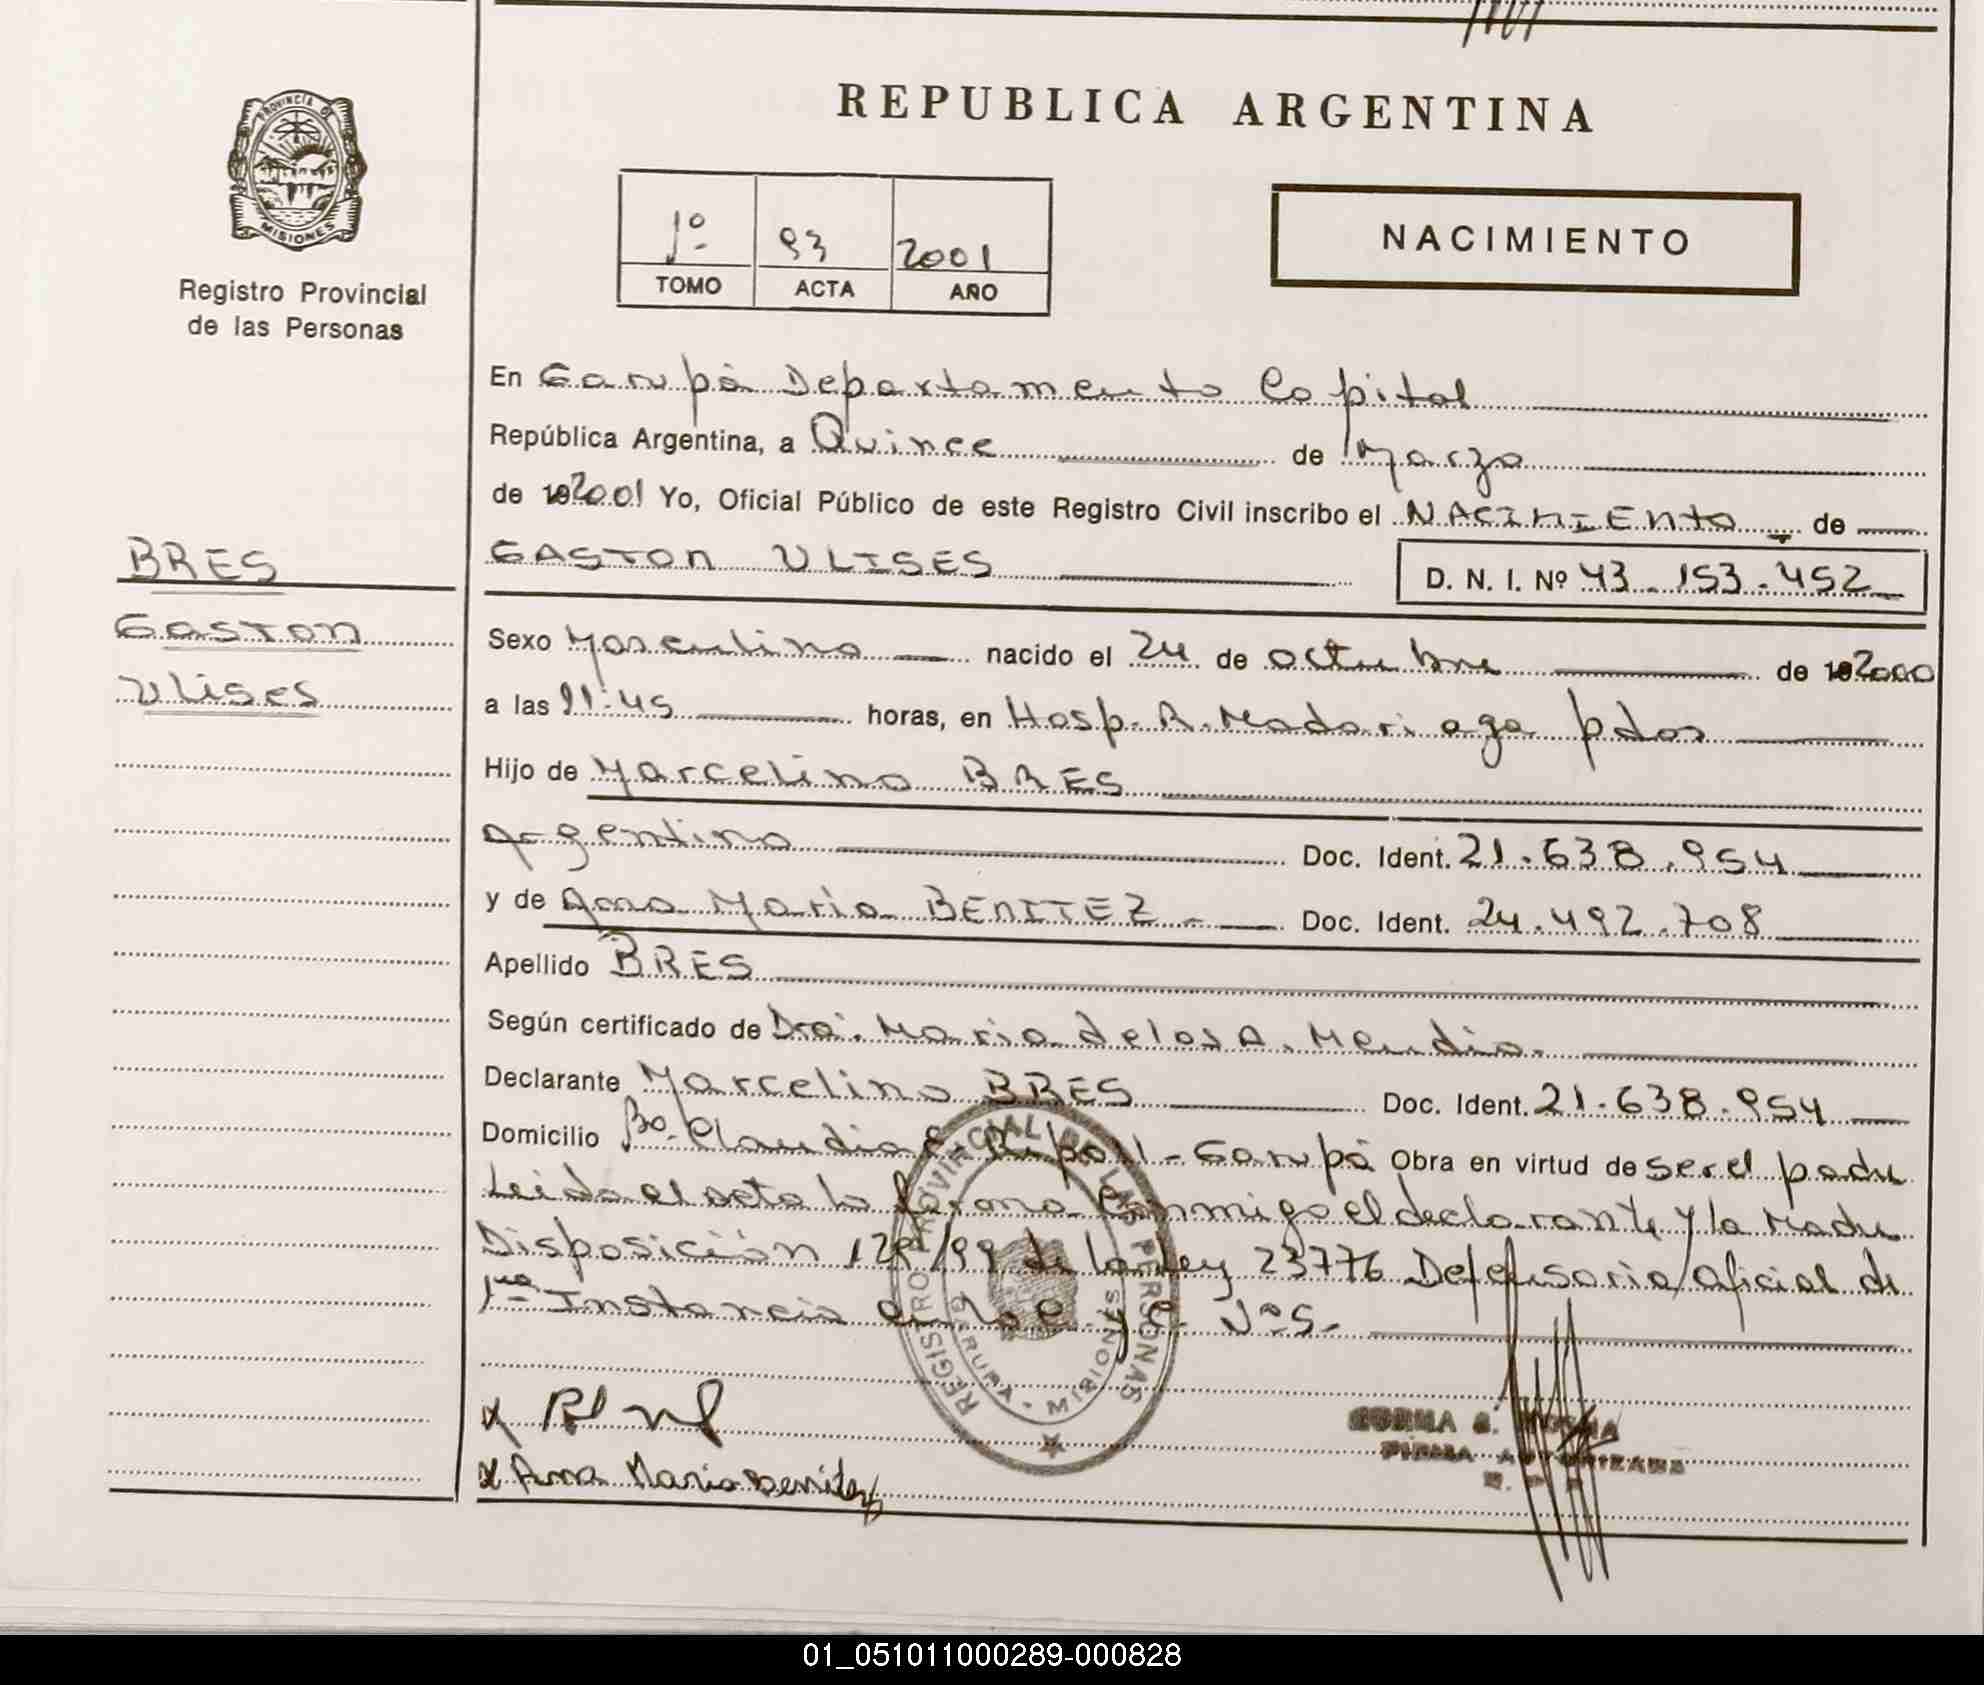 REPUBLICA ARGENTINA
PROVINCIA DE
MISIONES
Registro Provincial
de las Personas
1º 93 2001
TOMO ACTA AÑO
NACIMIENTO
En Garupá Departamento Capital
República Argentina, a Quince de Marzo
de 192001 Yo, Oficial Público de este Registro Civil inscribo el NACIMIENTO de
GASTON ULISES D. N. I. Nº 43.153.452
BRES
GASTON
ULISES
Sexo Masculino nacido el 24 de octubre de 192000
a las 11:45 horas, en Hosp. R. Madariaga pdas
Hijo de Marcelino BRES
Argentino Doc. Ident. 21.638.954
y de Ana Maria BENITEZ - Doc. Ident. 24.492.708
Apellido BRES
Según certificado de Dra. Maria de los A. Mendia.
Declarante Marcelino BRES Doc. Ident. 21.638.954
Domicilio Bo. Claudia E. Ripoll - Garupá Obra en virtud de ser el padre
Leida el acta la firma conmigo el declarante y la Madre
Disposición 129/99 de la Ley 23776 Defensoria Oficial de
1ra Instancia en lo C. y C. Nº 5.
REGISTRO PROVINCIAL DE LAS PERSONAS
GARUPA - MISIONES
x
x Ana Maria Benitez
FIRMA AUTORIZADA
01_051011000289-000828